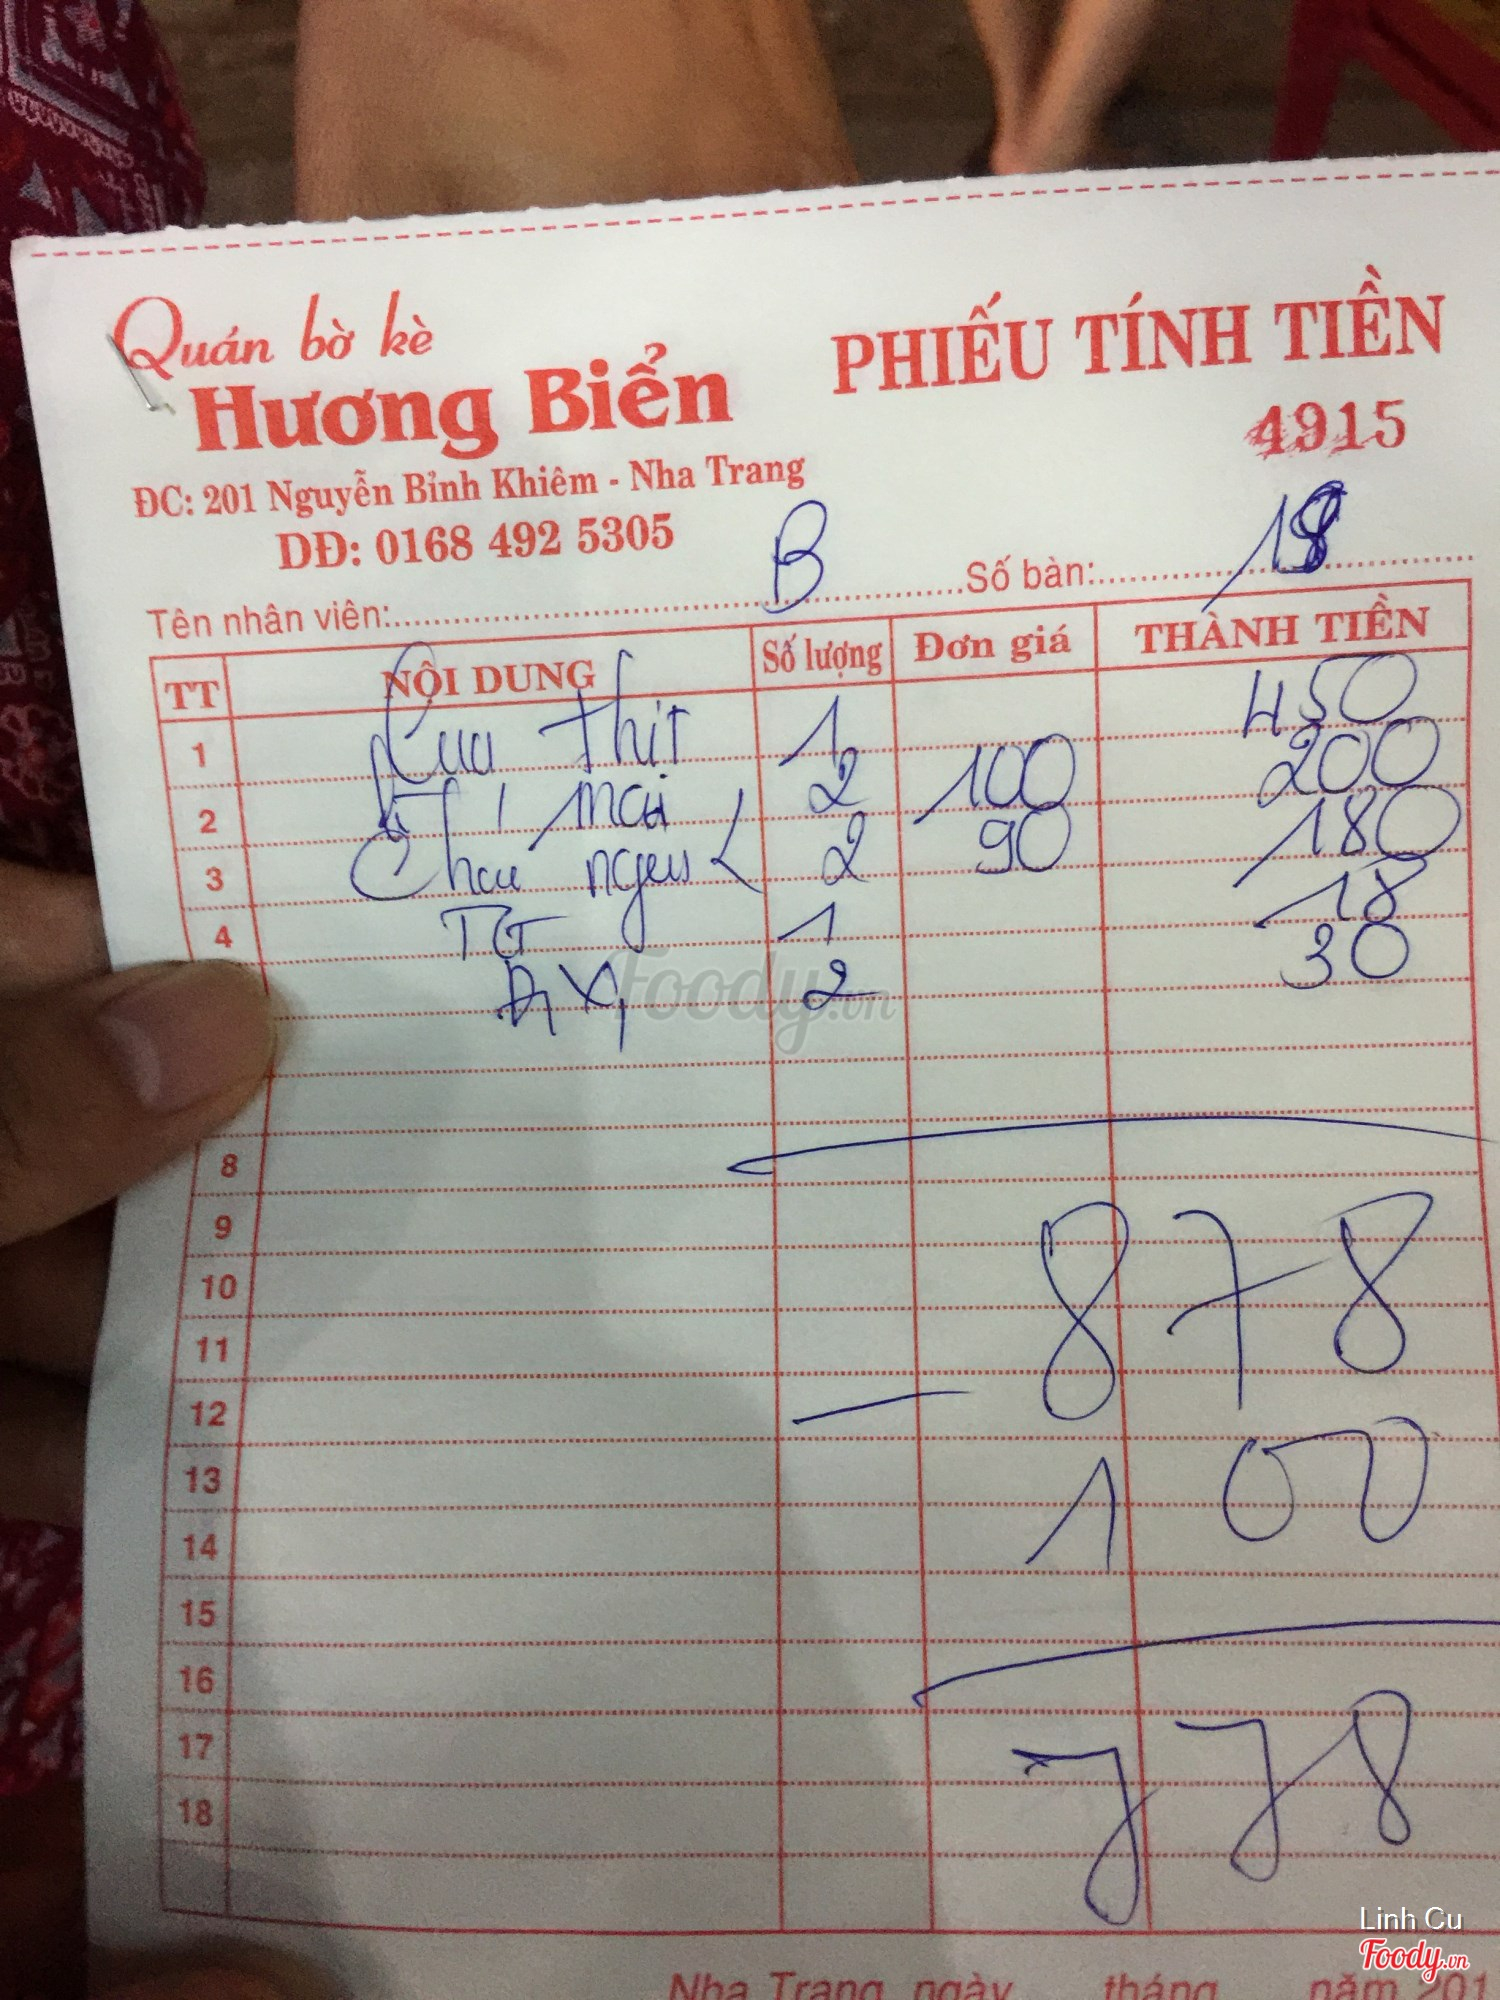 Quán bờ kè
Hương Biển
PHIẾU TÍNH TIỀN
4915
ĐC: 201 Nguyễn Bỉnh Khiêm - Nha Trang
DĐ: 0168 492 5305
Tên nhân viên: B Số bàn: 18
TT NỘI DUNG Số lượng Đơn giá THÀNH TIỀN
1 Cua thịt 1 450
2 mai 2 100 200
3 Cháo nghêu 2 90 180
4 TG 1 18
2 30
8
9 878
10
11
12
13 100
14
15
16
17 778
18
Nha Trang, ngày tháng năm 201
Foody.vn
Linh Cu
Foody.vn